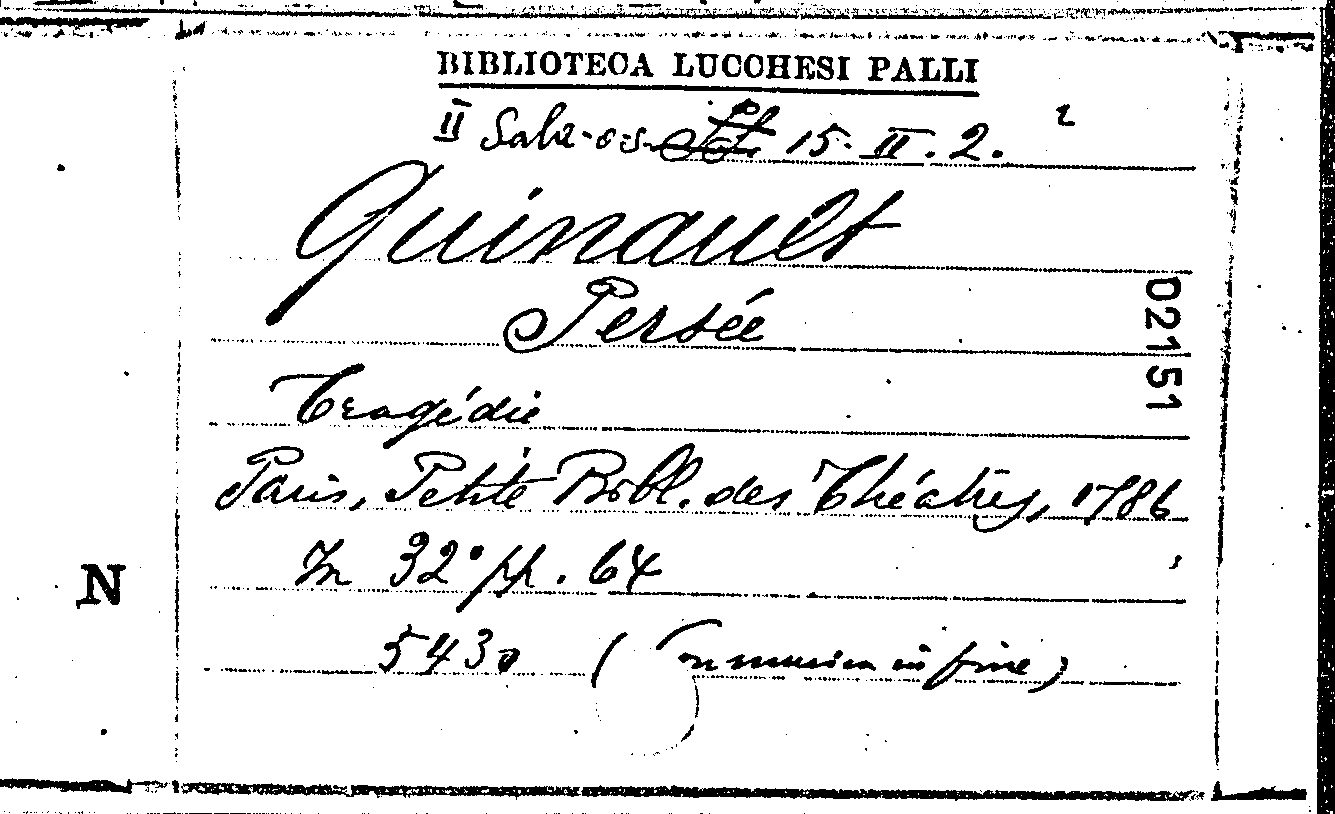 BIBLIOTECA LUCCHESI PALLI
II Sala 15. II. 2.
2
Quinault
Persée
Tragédie
Paris, Petite Bibl. des Théâtres, 1786
In 32° pp. 64
5430 (Con musica in fine)
N
02151